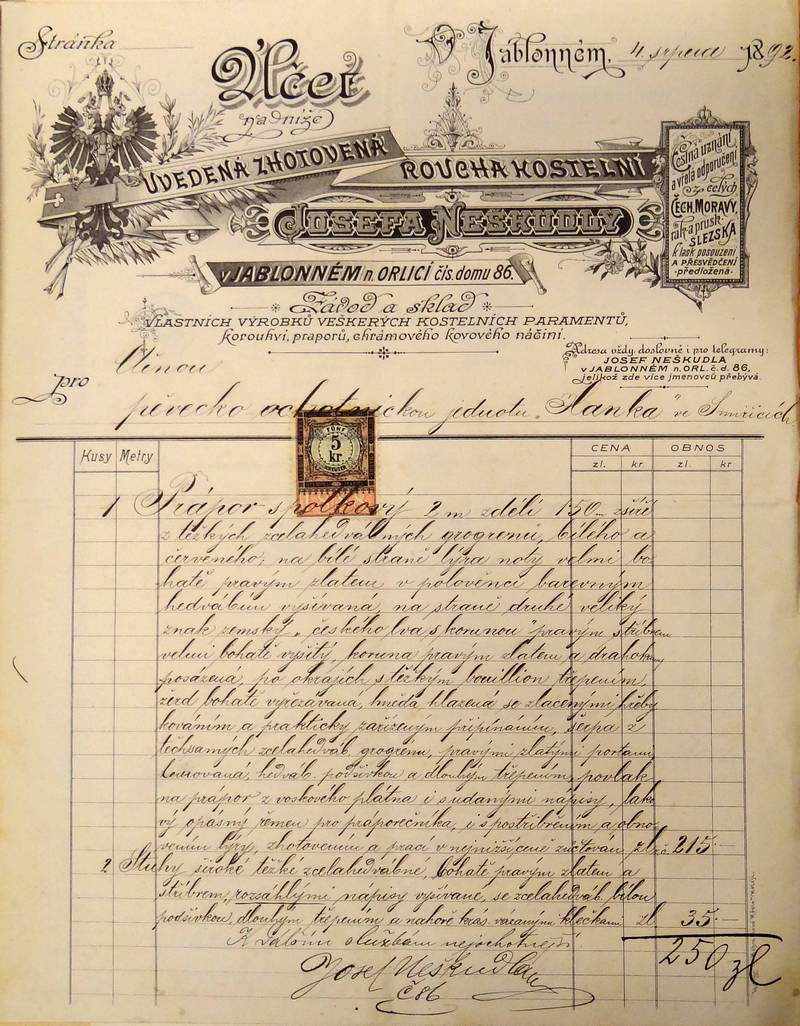 Stránka
V Jablonném, 4. srpna 1892.
Účet
na dníže
UVEDENÁ ZHOTOVENÁ ROUCHA KOSTELNÍ
JOSEFA NEŠKUDLY
v JABLONNÉM n. ORLICÍ čís. domu 86.
Čestná uznání
a vřelá odporučení
z celých
ČECH, MORAVY,
rak. a prusk.
SLEZSKA
k lask. posouzení
A PŘESVĚDČENÍ
předložená.
Závod a sklad
VLASTNÍCH VÝROBKŮ VEŠKERÝCH KOSTELNÍCH PARAMENTŮ,
korouhví, praporů, chrámového kovového náčiní.
Adresa vždy doslovně i pro telegramy:
JOSEF NEŠKUDLA
v JABLONNÉM n. ORL. č. d. 86,
jelikož zde více jmenovců přebývá.
Ctěnou
pro
pěvecko ochotnickou jednotu „Hanka" ve Smiřicích
Kusy Metry CENA OBNOS
zl. kr. zl. kr
FÜNF
5
kr.
KREUZER
1 Prápor spolkový 2 m zdéli 1·50 m zšíří
z těžkých zcelahedvábných grogrenů, bílého a
červeného; na bílé straně lýra noty velmi bo-
hatě pravým zlatem v polovenci barevným
hedvábím vyšívaná, na straně druhé veliký
znak zemský „českého lva s korunou" pravým stříbrem
velmi bohatě vyšitý, koruna pravým zlatem a drahokamy
posázena, po okrajích s těžkým bouillion třepením,
žerď bohatě vyřezávaná, hnědá hlazená se zlacenými hřeby
kováním a prakticky zařízeným připínáním, šerpa z
těchsamých zcelahedváb. grogrenu, pravými zlatými portami
bortovaná, hedváb. podšívkou a dlouhým třepením, povlak
na prápor z voskového plátna i s udanými nápisy, lako-
vý opásný řemen pro praporečníka, i s postříbřením a obno-
vením lýry, zhotovením a prací v nejnižší ceně zúčtován zl. 215·—
2 Stuhy široké těžké zcelahedvábné, bohatě pravým zlatem a
stříbrem, rozsáhlými nápisy vyšívané, se zcelahedváb. bílou
podšívkou, dlouhým třepením a nahoře krás. vázanými kličkami zl. 35·—
K dalším službám nejochotnější 250 zl
Josef Neškudla
č 86